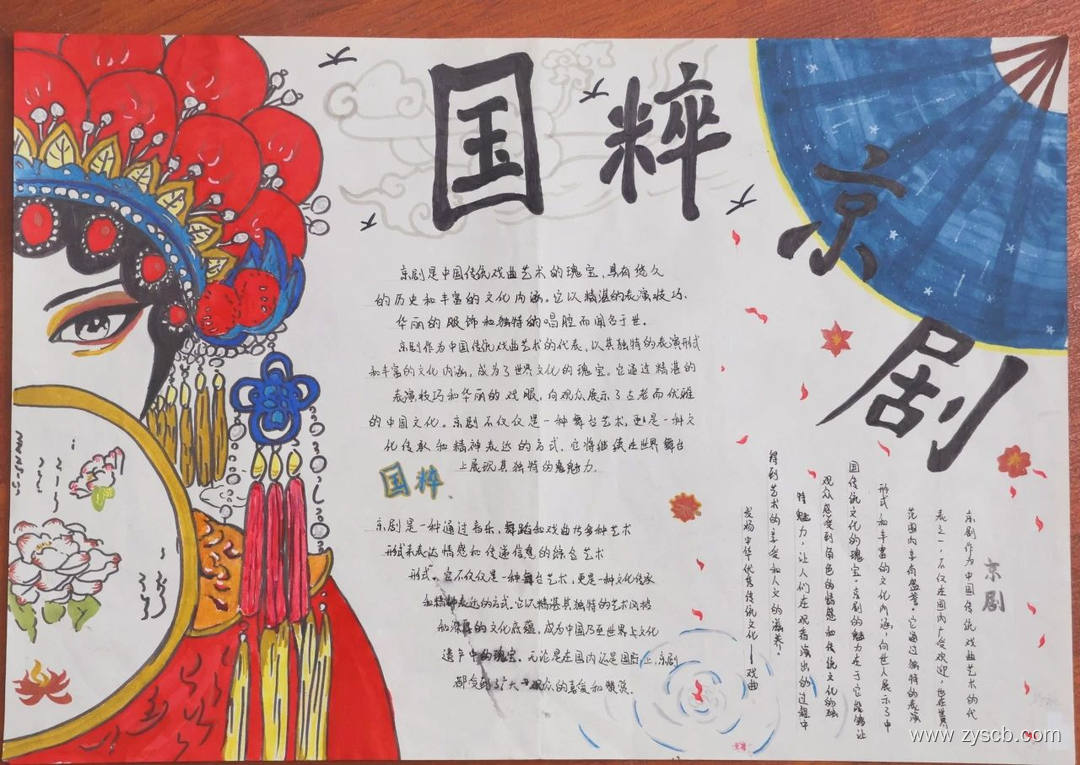 国粹
京剧
京剧是中国传统戏曲艺术的瑰宝，具有悠久
的历史和丰富的文化内涵。它以精湛的表演技巧、
华丽的服饰和独特的唱腔而闻名于世。
京剧作为中国传统戏曲艺术的代表，以其独特的表演形式
和丰富的文化内涵，成为了世界文化的瑰宝。它通过精湛的
表演技巧和华丽的戏服，向观众展示了古老而优雅
的中国文化。京剧不仅仅是一种舞台艺术，更是一种文
化传承和精神表达的方式，它将继续在世界舞台
上展现其独特的魅力。
国粹
京剧是一种通过音乐，舞蹈和戏曲代多种艺术
形式来表达情感和传递信息的综合艺术
形式。它不仅仅是一种舞台艺术，更是一种文化传承
和精神表达的方式。它以精湛其独特的艺术风格
和深厚的文化底蕴，成为中国乃至世界上文化
遗产中的瑰宝。无论是在国内还是国际上，京剧
都受到了广大观众的喜爱和赞赏。
京剧
京剧作为中国传统戏曲艺术的代
表之一，不仅在国内广受欢迎，也在世界
范围内享有盛誉。它通过独特的表演
形式和丰富的文化内涵，向世人展示了中
国传统文化的瑰宝。京剧的魅力在于它能够让
观众感受到角色的情感和传统文化的独
特魅力，让人们在观看演出的过程中
得到艺术的享受和人文的滋养。
发扬中华优秀传统文化——戏曲
www.zyscb.com